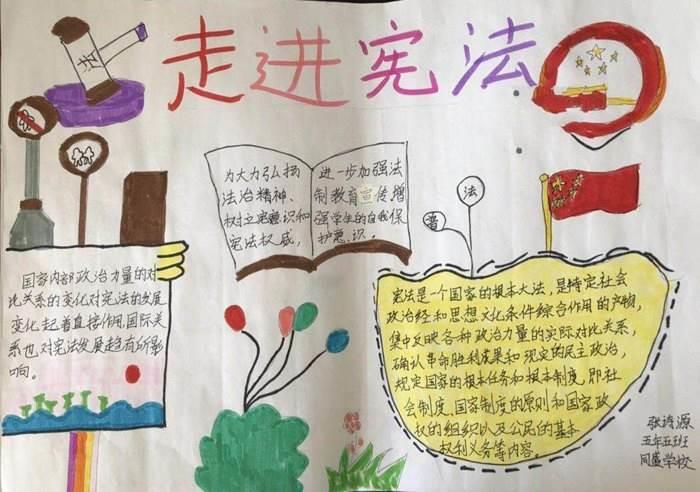 走进宪法
法
为大力弘扬
法治精神、
树立宪意识和
宪法权威,
进一步加强法
制教育宣传增
强学生的自我保
护意识。
普
法
国家内部政治力量的对
比关系的变化对宪法的发展
变化起着直接作用,国际关
系也对宪法发展趋有所影
响。
宪法是一个国家的根本大法,是特定社会
政治经和思想文化条件综合作用的产物,
集中反映各种政治力量的实际对比关系,
确认革命胜利成果和现实的民主政治,
规定国家的根本任务和根本制度,即社
会制度、国家制度的原则和国家政
权的组织以及公民的基本
权利义务等内容。
张诗源
五年五班
同盛学校